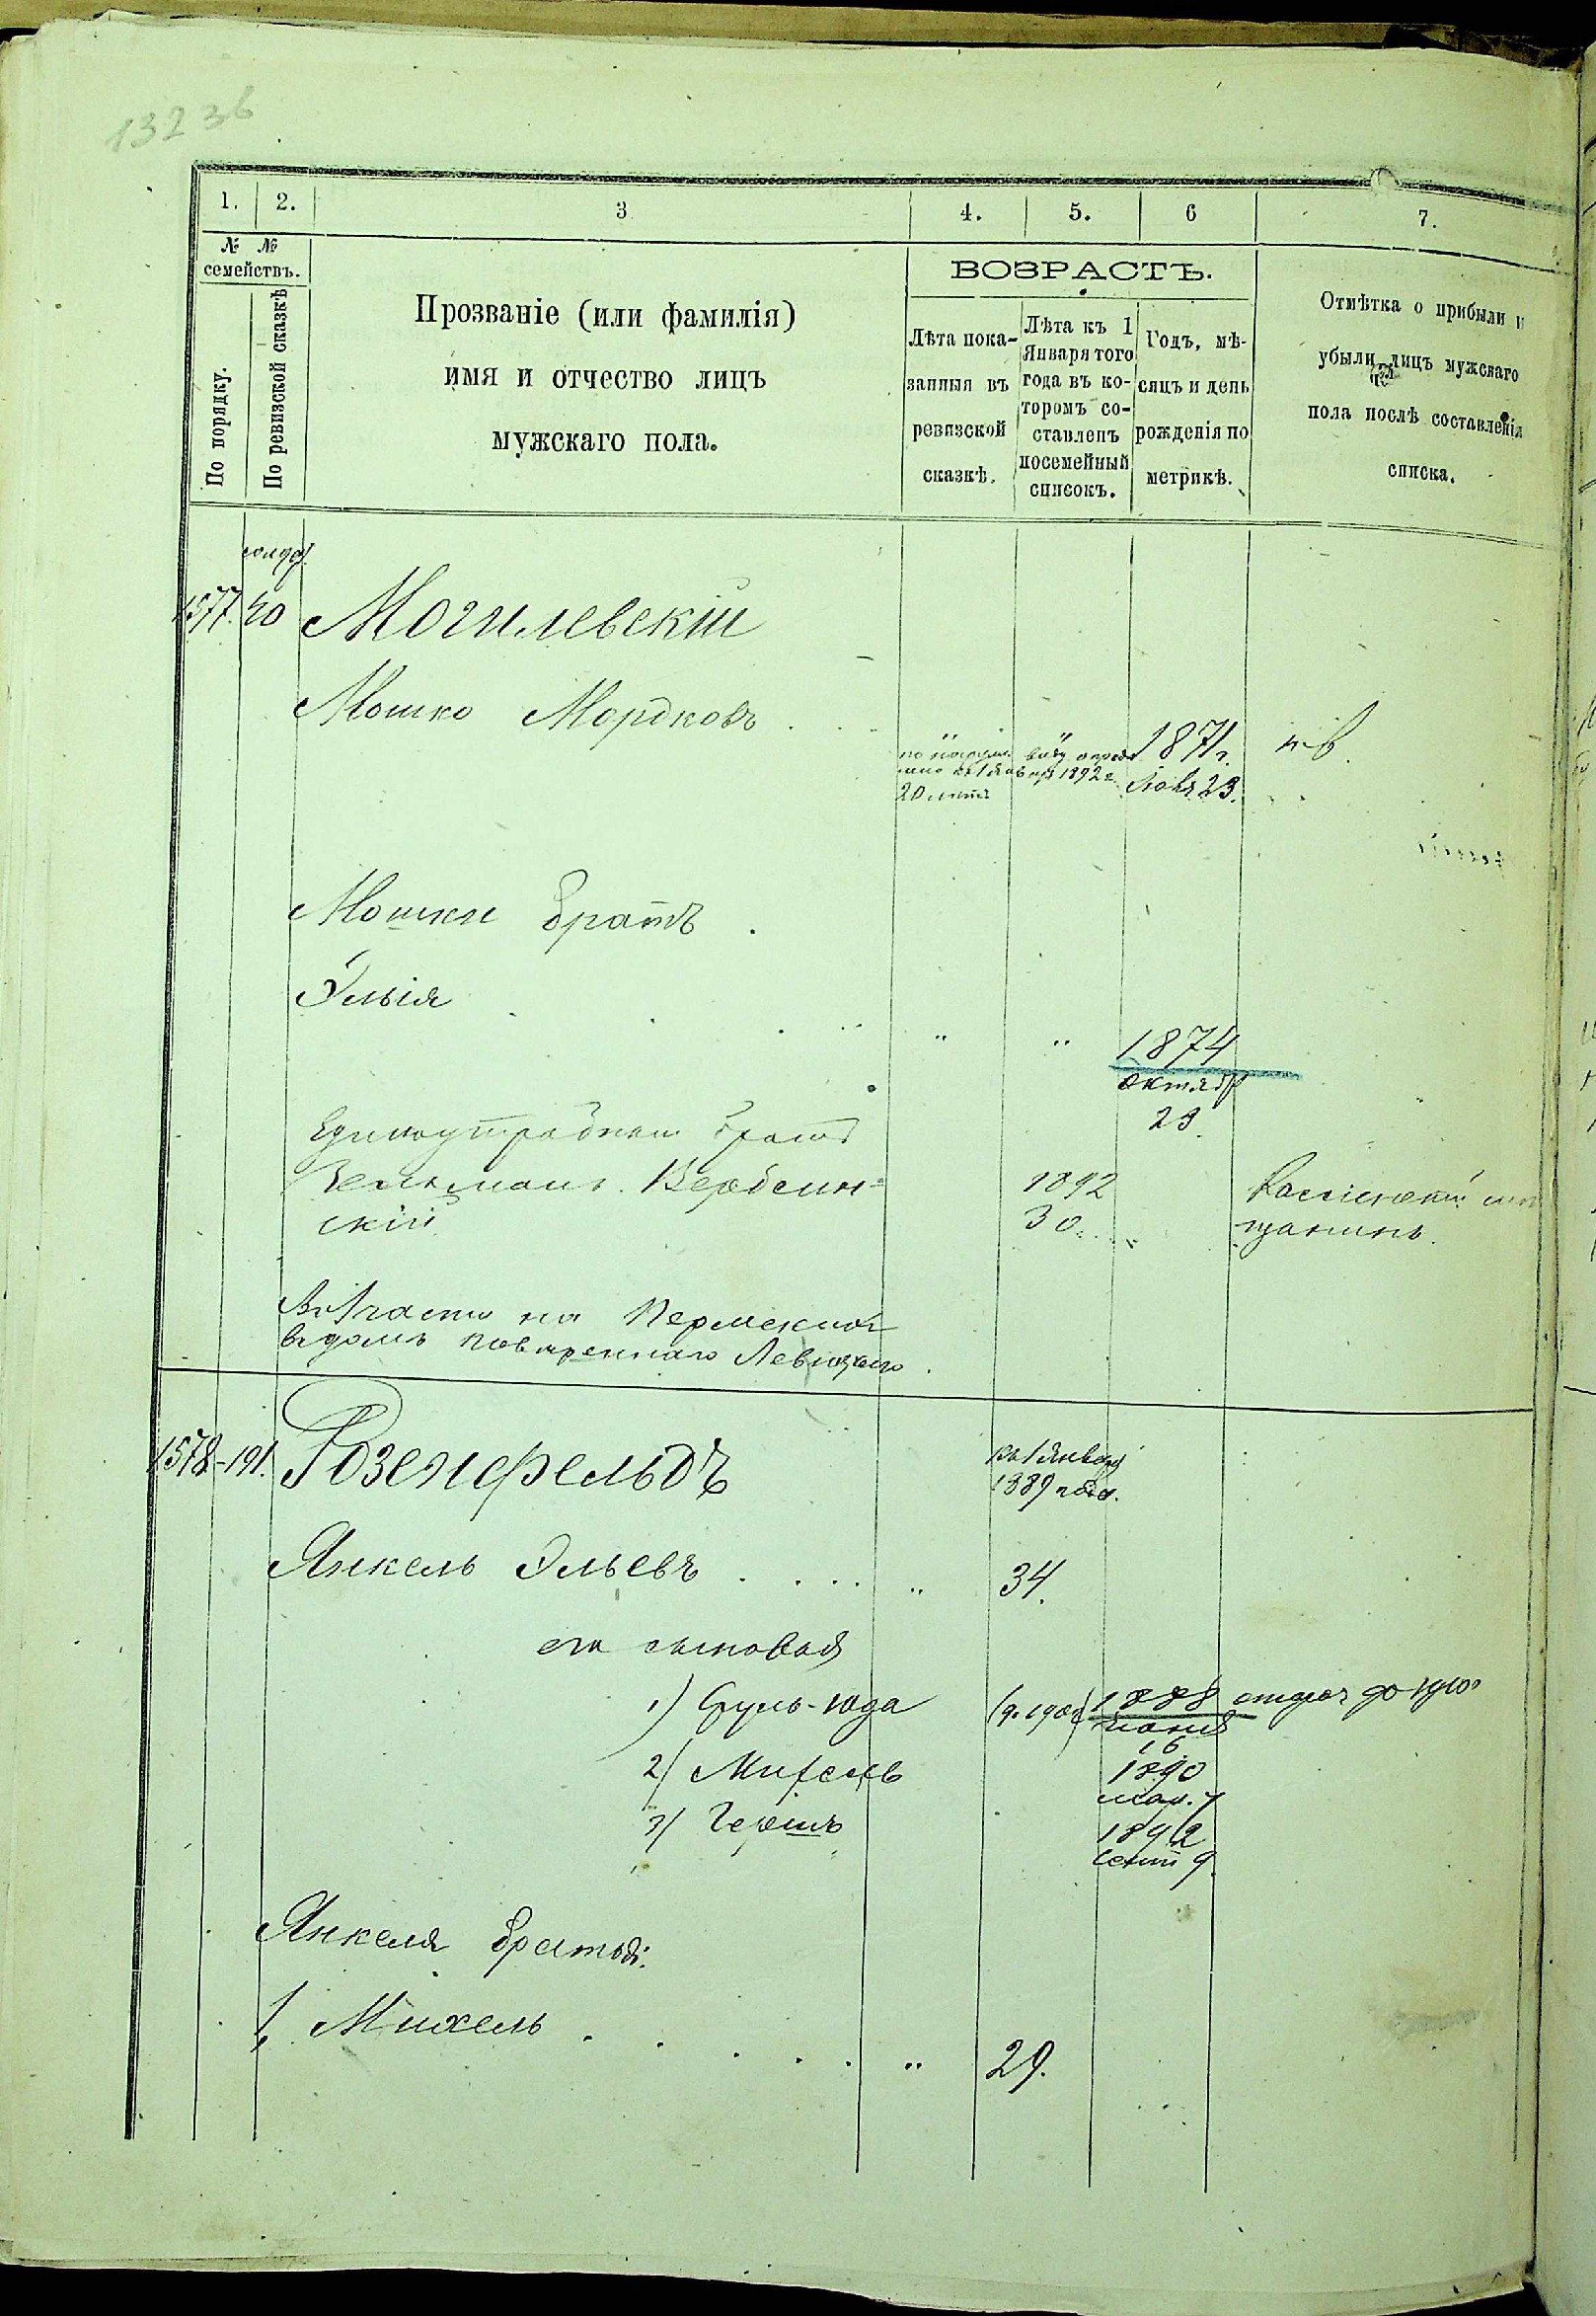 132 зв
1. 2. 3 4. 5. 6 7.
№ №
семействъ.
По порядку.
По ревизской сказкѣ
Прозваніе (или фамилія)
имя и отчество лицъ
мужскаго пола.
ВОЗРАСТЪ.
Лѣта пока-
занныя въ
ревизской
сказкѣ.
Лѣта къ 1
Января того
года въ ко-
торомъ со-
ставленъ
посемейный
списокъ.
Годъ, мѣ-
сяцъ и день
рожденія по
метрикѣ.
Отмѣтка о прибыли и
убыли лицъ мужскаго
пола послѣ составленія
списка.
1577. 40 Могилевскій
Мошко Мордковъ 1871г.
1892г. Ноябр 23.
20 лѣтъ
Мошки братъ
Элья
1874
октябр
23.
Единоутробный братъ
Зельманъ Вербелин- 1892
скій 30
щанинъ.
В 1 части на Пермской
въ домѣ повѣреннаго Левицкаго
1578-191. Розенфельдъ къ 1 Январ
1889 года.
Янкель Эльевъ 34.
его сыновья
1) Сруль-Юда 1888 до 1910
іюня
16
2) Михель 1890
мая. 7
3) Гершъ 1892
Сент 9
Янкеля братья:
1, Михель 29.